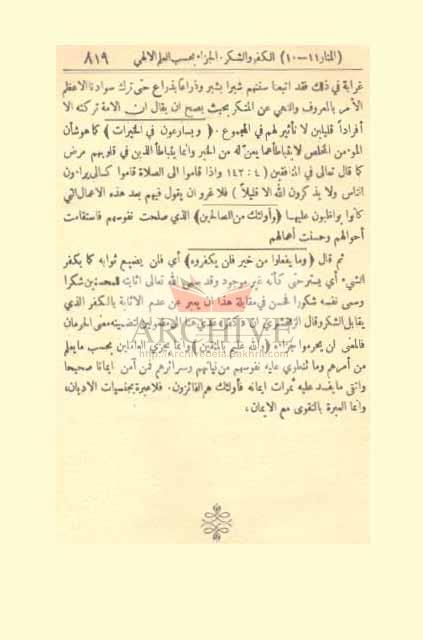 (المنار ١١ — ١٠) الكفر والشكر. الجزاء بحسب العلم الالهي ٨١٩
غرابة في ذلك فقد اتبعنا سننهم شبرا بشبر وذراعا بذراع حتى ترك سوادنا الاعظم
الأمر بالمعروف والنهي عن المنكر بحيث يصح ان يقال ان الامة تركته الا
أفراداً قليلين لا تأثير لهم في المجموع. (ويسارعون في الخيرات) كما هو شأن
المؤمن المخلص لا يتباطأ عما يعن له من الخير وانما يتباطأ الذين في قلوبهم مرض
كما قال تعالى في المنافقين (٤ : ١٤٢ واذا قاموا الى الصلاة قاموا كسالى يراءون
الناس ولا يذكرون الله الا قليلاً) فلا غرو ان يقول فيهم بعد هذه الاعمال التي
كانوا يواظبون عليها (وأولئك من الصالحين) الذي صلحت نفوسهم فاستقامت
أحوالهم وحسنت أعمالهم
ثم قال (وما يفعلوا من خير فلن يكفروه) أي فلن يضيع ثوابه كما يكفر
الشيء أي يستر حتى كأنه غير موجود وقد سمى الله تعالى اثابته للمحسنين شكرا
وسمى نفسه شكورا فحسن في مقابلة هذا ان يعبر عن عدم الاثابة بالكفر الذي
يقابل الشكر وقال الزمخشري لتضمينه معنى الحرمان
فالمعنى لن يحرموا جزاءه (والله عليم بالمتقين) وانما يجزي العاملين بحسب ما يعلم
من أمرهم وما تنطوي عليه نفوسهم من نياتهم وسرائرهم فمن آمن ايمانا صحيحا
واتقى ما يفسد عليه ثمرات ايمانه فأولئك هم الفائزون. فلا عبرة بجنسيات الاديان،
وانما العبرة بالتقوى مع الايمان،
ARCHIVE
http://Archivebeta.Sakhrit.com